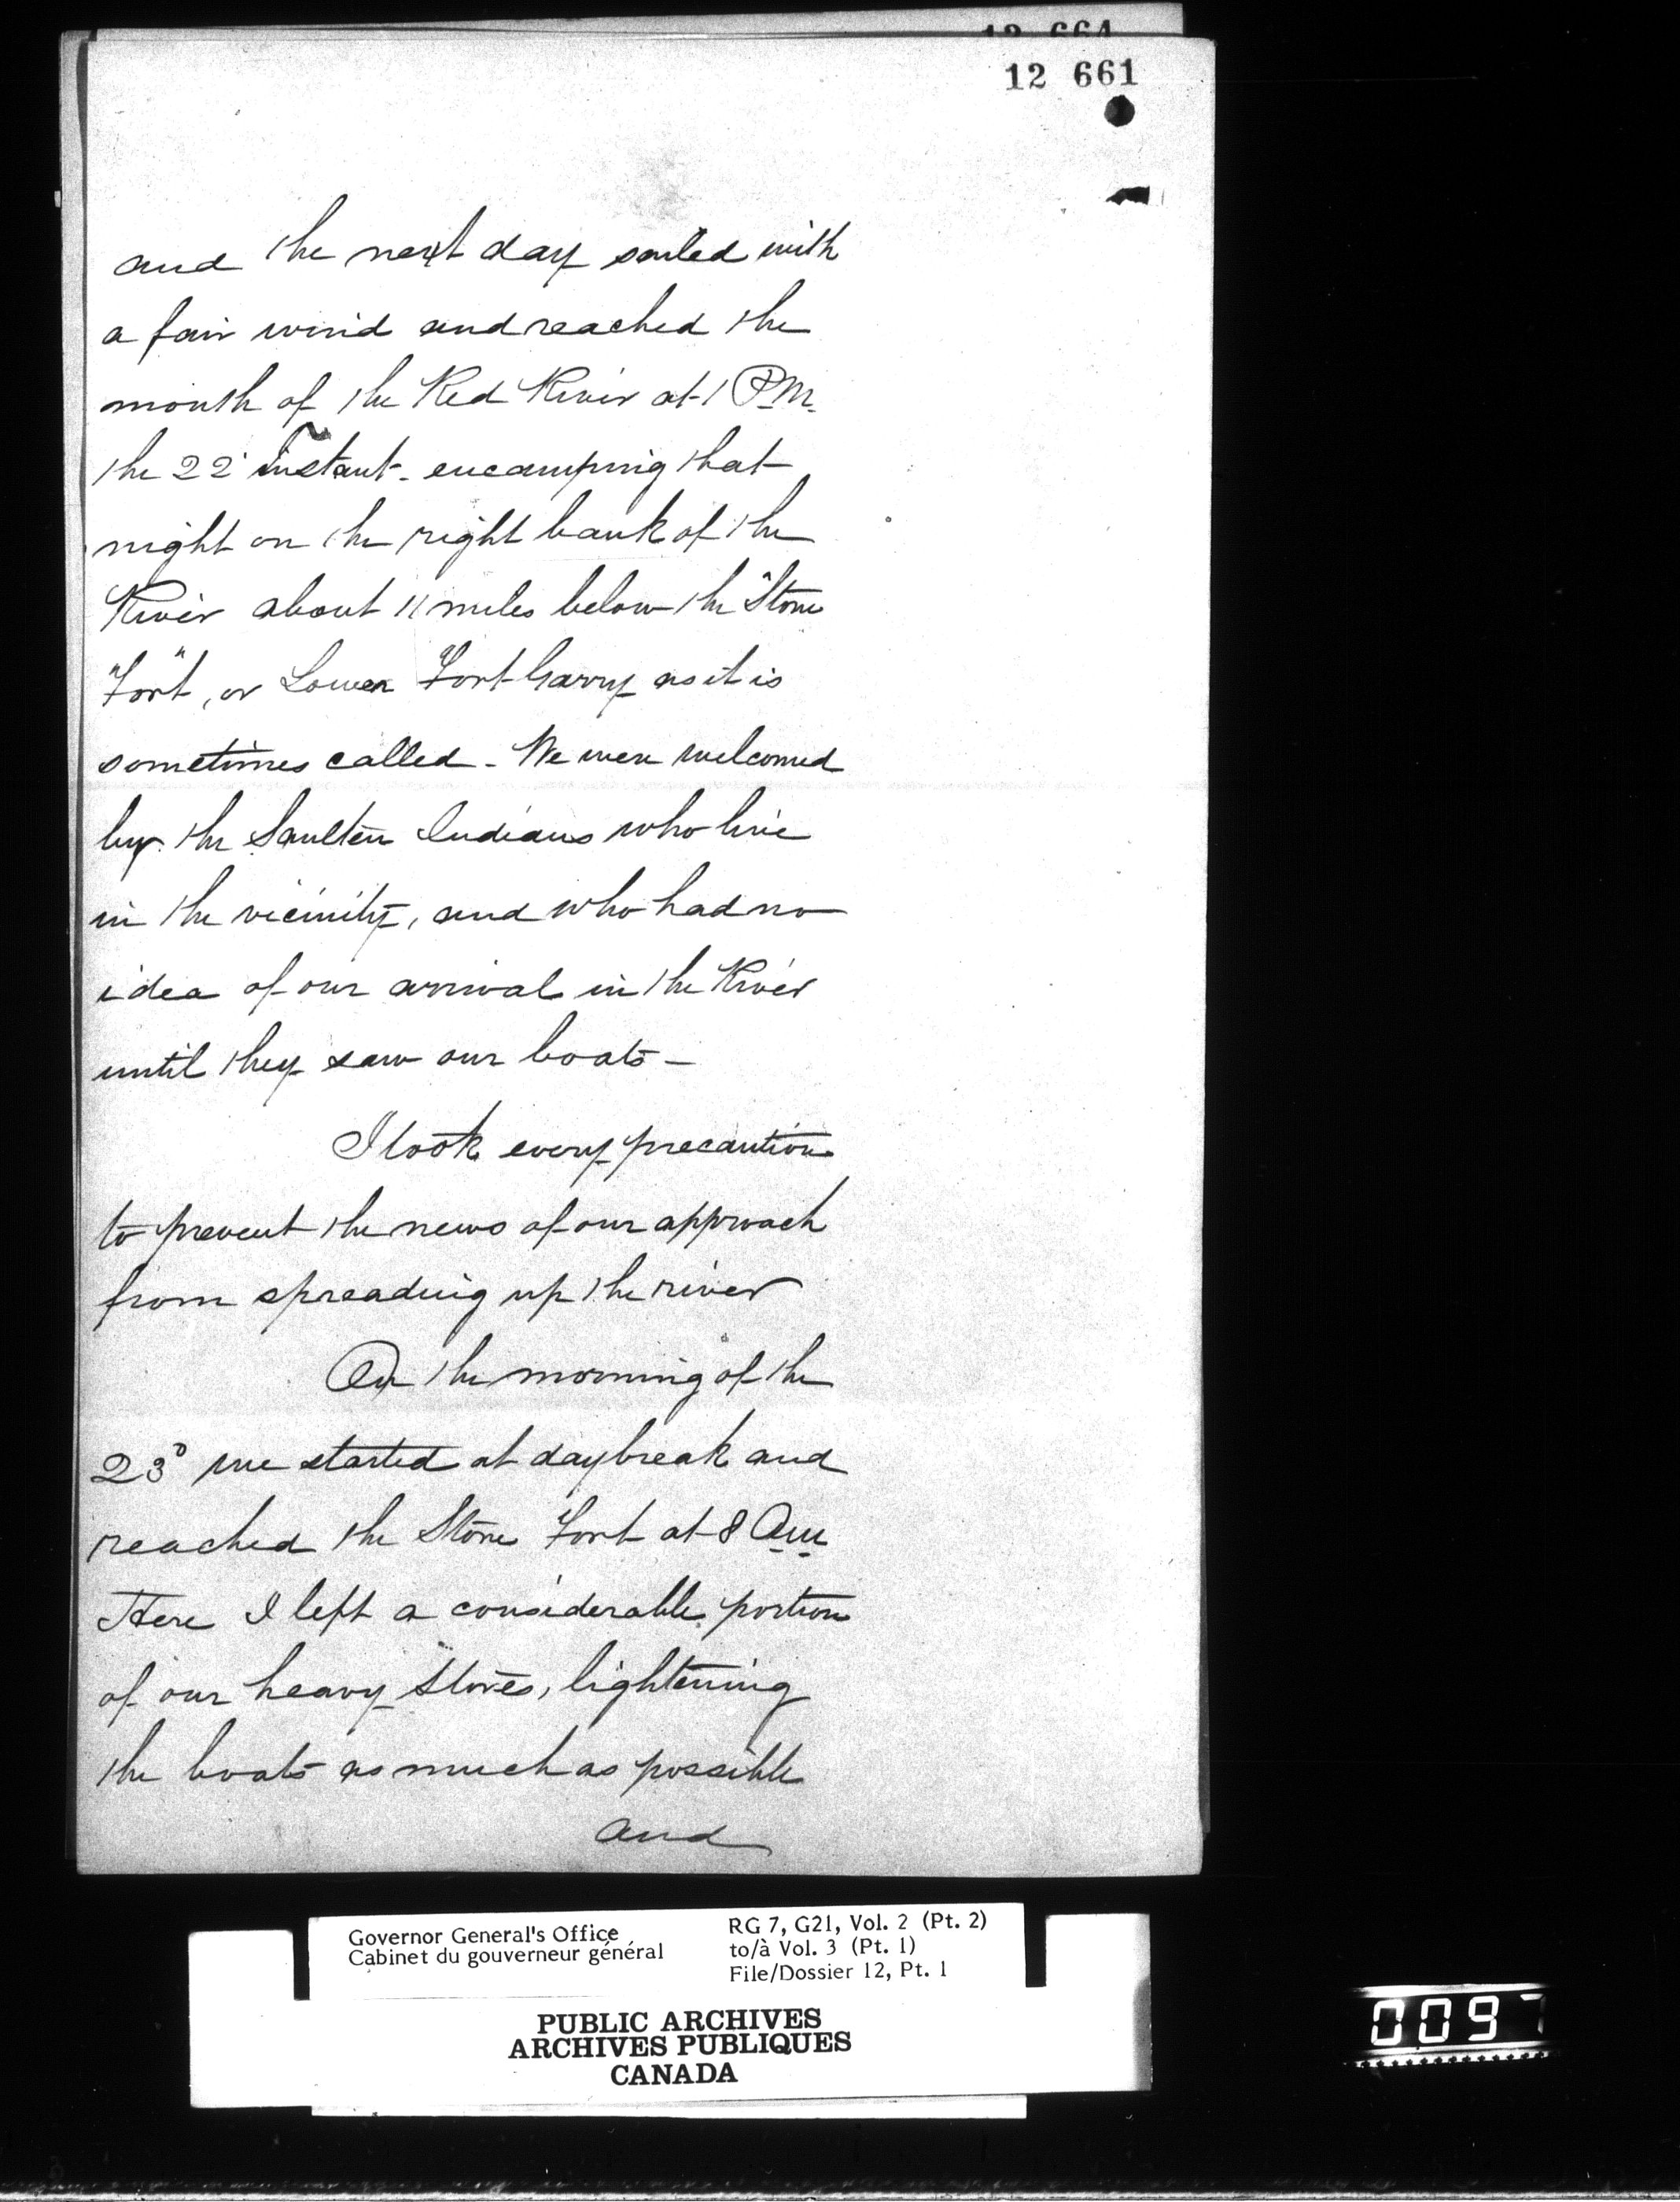 12 664
12 661
and the next day sailed with
a fair wind and reached the
mouth of the Red River at 1 P.M.
the 22 instant - encamping that
night on the right bank of the
River about 11 miles below the "Stone
Fort", or Lower Fort Garry as it is
sometimes called - We were welcomed
by the Saulteu Indians who live
in the vicinity, and who had no
idea of our arrival in the River
until they saw our boats -
I took every precaution
to prevent the news of our approach
from spreading up the river
On the morning of the
23d we started at daybreak and
reached the Stone Fort at 8 Am
Here I left a considerable portion
of our heavy stores, lightening
the boats as much as possible
and
Governor General's Office
Cabinet du gouverneur général
RG 7, G21, Vol. 2 (Pt. 2)
to/à Vol. 3 (Pt. 1)
File/Dossier 12, Pt. 1
PUBLIC ARCHIVES
ARCHIVES PUBLIQUES
CANADA
0097